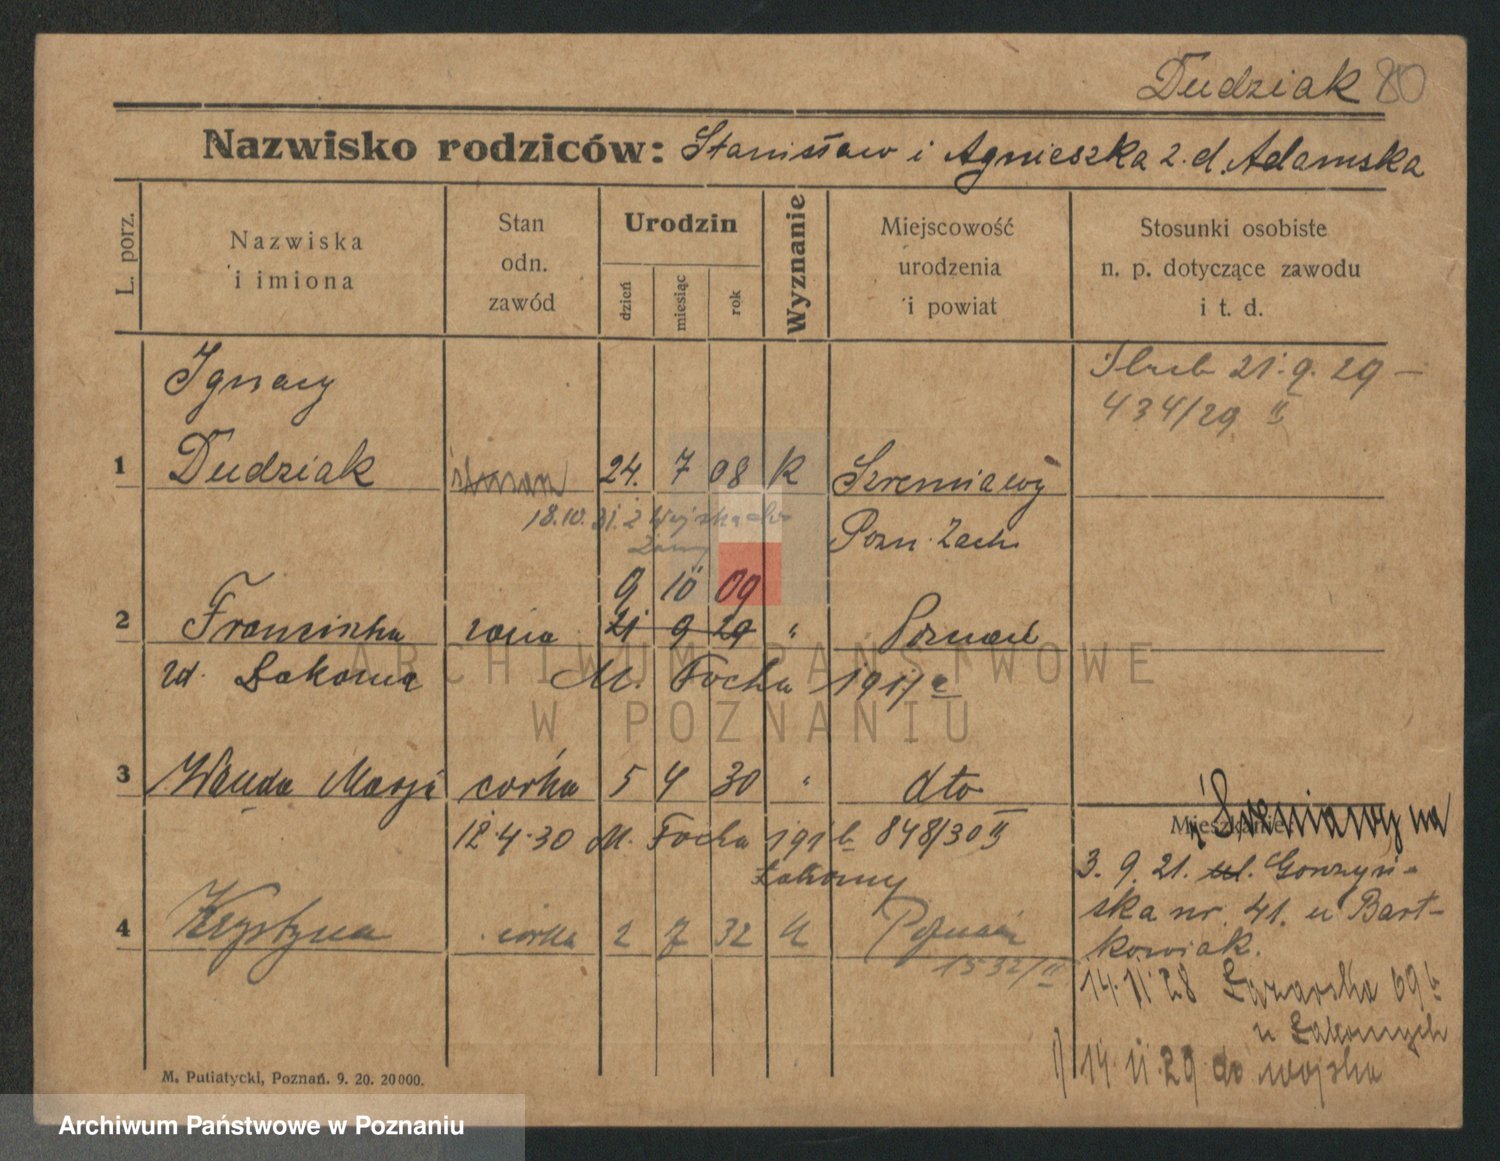 Dudziak 80
Nazwisko rodziców: Stanisław i Agnieszka z. d. Adamska
L. porz.
Nazwiska
i imiona
Stan
odn.
zawód
Urodzin
dzień
miesiąc
rok
Wyznanie
Miejscowość
urodzenia
i powiat
Stosunki osobiste
n. p. dotyczące zawodu
i t. d.
Ślub 21.9.29 —
434/29 II
Ignacy
1 Dudziak 24. 7 08 K Szreniawy
18.10.31. z Wojska do
żony
Pozn. Zach.
9 10 09
2 Franciszka żona 21 9 29 " Poznań
zd. Łakoma M. Focha 191
3 Wanda Marja córka 5 4 30 " dto
12.4.30 M. Focha 191 b 848/30 II
Łakomy
4 Krystyna córka 2 7 32 K Poznań
1532/II
Mieszkanie
z Szreniawy na
3. 9. 21. ul. Gorczyń-
ska nr. 41. u Bart-
kowiak.
14.11.28 Łazarska 69 b
u Łakomych
14.11.29 do wojska
M. Putiatycki, Poznań. 9. 20. 20000.
ARCHIWUM PAŃSTWOWE
W POZNANIU
Archiwum Państwowe w Poznaniu